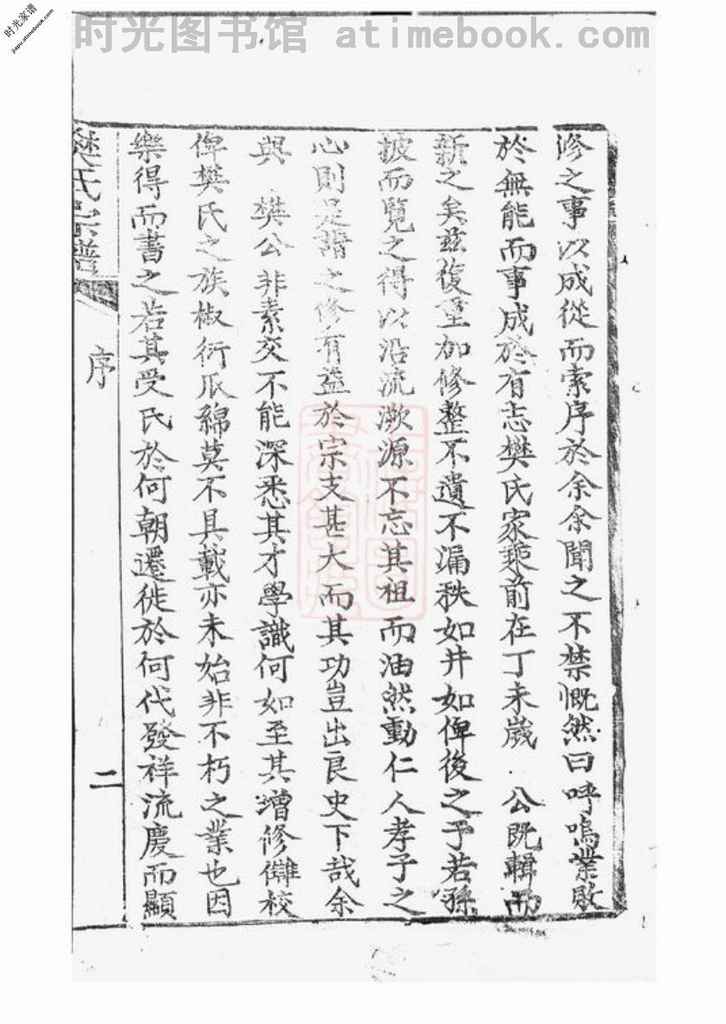 时光图书馆 atimebook.com
时光家谱
jiapu.atimebook.com
修之事以成從而索序於余余聞之不禁慨然曰呼嗚業敗
於無能而事成於有志樊氏家乘前在丁未歲 公既輯而
新之矣茲復重加修整不遺不漏秩如井如俾後之子若孫
披而覽之得以沿流溯源不忘其祖而油然動仁人孝子之
心則是譜之修有益於宗支甚大而其功豈出良史下哉余
與 樊公非素交不能深悉其才學識何如至其增修讎校
俾樊氏之族椒衍瓜綿莫不具載亦未始非不朽之業也因
樂得而書之若其受氏於何朝遷徙於何代發祥流慶而顯
樊氏宗譜
序
二